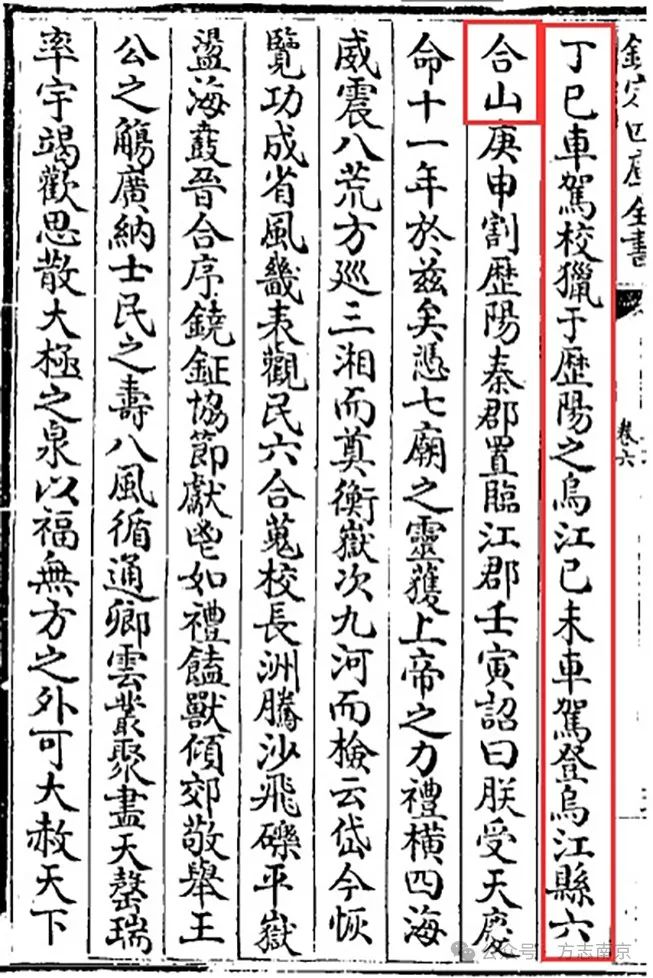 欽定四庫全書
卷六
丁巳車駕校獵于歴陽之烏江己未車駕登烏江縣六
合山庚申割歴陽秦郡置臨江郡壬寅詔曰朕受天慶
命十一年於兹矣憑七廟之靈獲上帝之力禮橫四海
威震八荒方巡三湘而奠衡嶽次九河而檢云岱今恢
覽功成省風畿表觀民六合蒐校長洲騰沙飛礫平嶽
盪海鼖晉合序鐃鉦協節獻鬯如禮饁獸傾郊敬舉王
公之觴廣納士民之壽八風循通卿雲叢聚盡天罄瑞
率宇竭歡思散大極之泉以福無方之外可大赦天下
公众号 · 方志南京